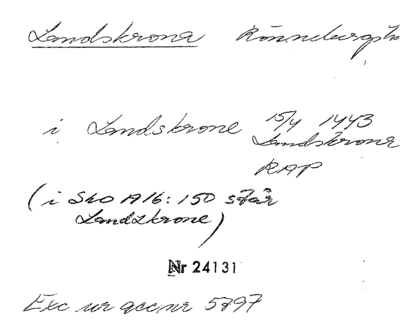 Landskrona Rönnebergs h
i Landskrone 15/4 1443
Landskrona
RAP
(i Sko A16: 150 står
Landzkrone)
Nr 24131
Exc ur acc nr 5797